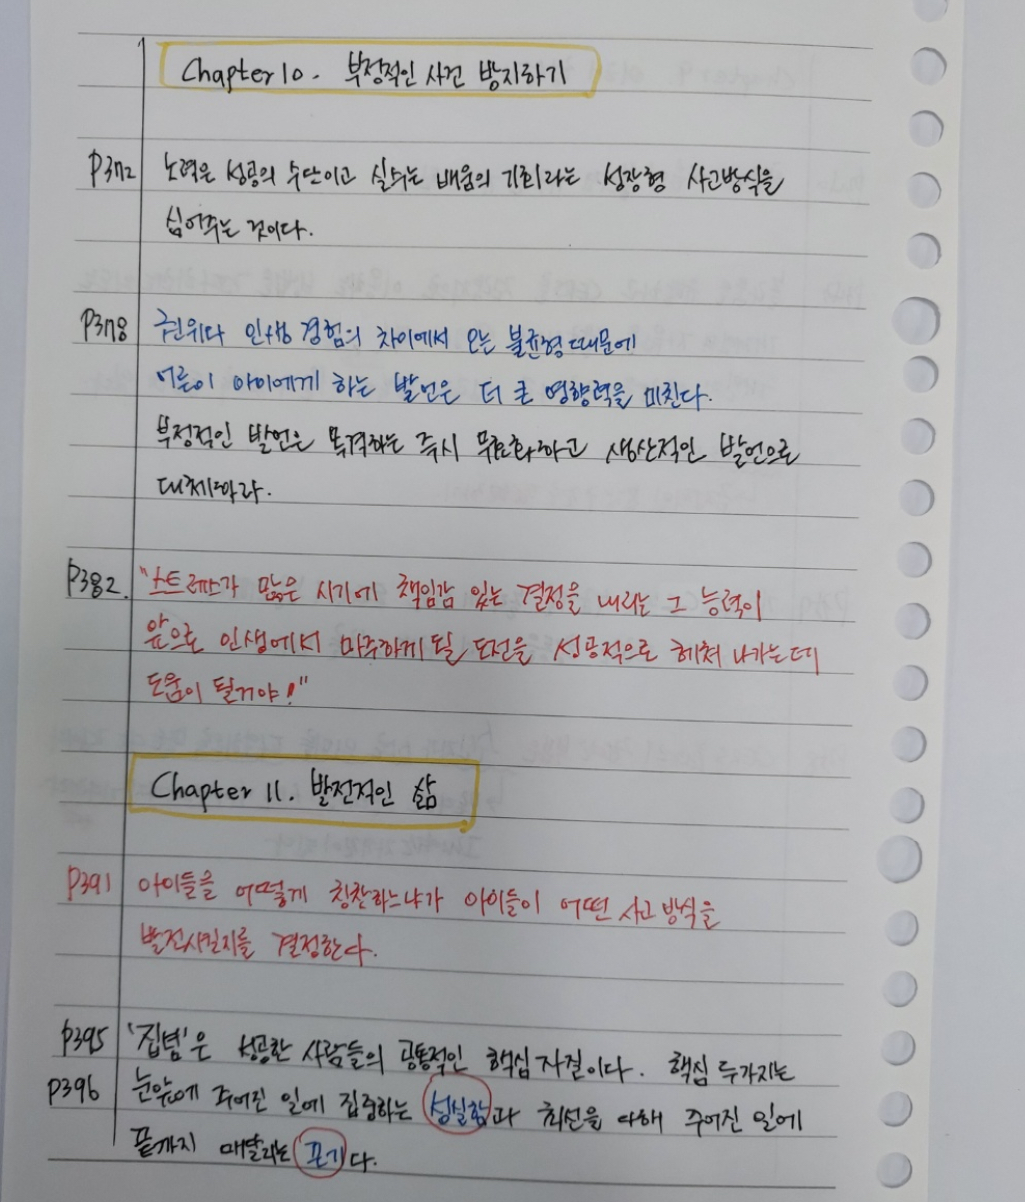 Chapter 10. 부정적인 사건 방지하기
P372 노력은 성공의 수단이고 실수는 배움의 기회라는 성장형 사고방식을
심어주는 것이다.
P378 권위다 인생 경험의 차이에서 오는 불균형 때문에
어른이 아이에게 하는 발언은 더 큰 영향력을 미친다.
부정적인 발언은 목격하는 즉시 무효화하고 생산적인 발언으로
대체하라.
P382. "스트레스가 많은 시기에 책임감 있는 결정을 내리는 그 능력이
앞으로 인생에서 마주하게 될 도전을 성공적으로 헤쳐 나가는데
도움이 될거야!"
Chapter 11. 발전적인 삶
P391 아이들을 어떻게 칭찬하느냐가 아이들이 어떤 사고 방식을
발전시킬지를 결정한다.
P395 '집념'은 성공한 사람들의 공통적인 핵심 자질이다. 핵심 두가지는
P396 눈앞에 주어진 일에 집중하는 성실함과 최선을 다해 주어진 일에
끝까지 매달리는 끈기다.